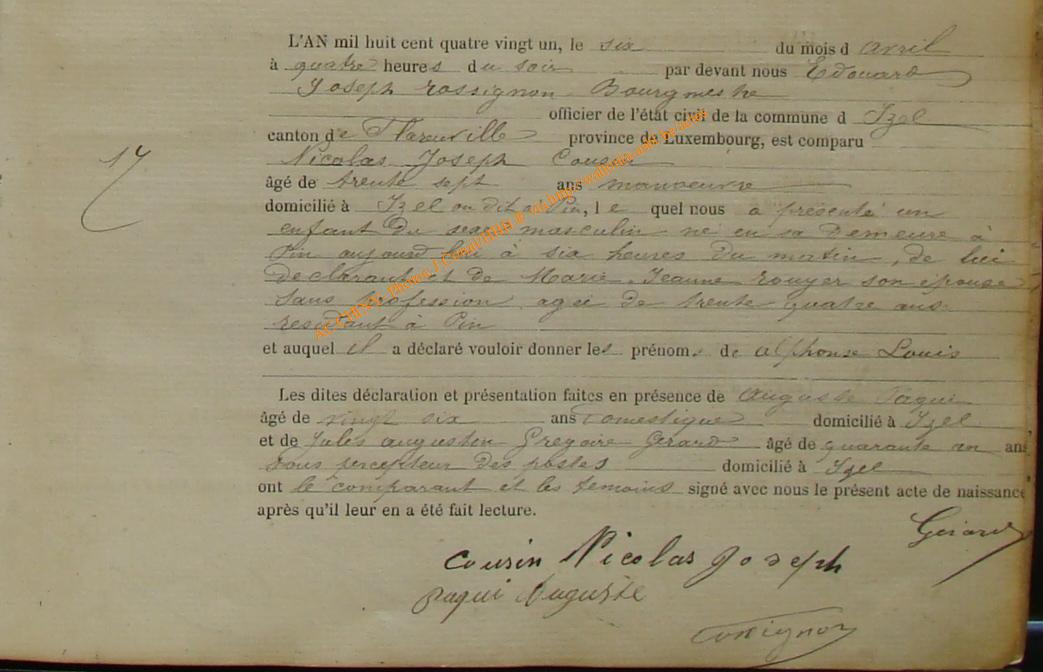 L'AN mil huit cent quatre vingt un, le six du mois d avril
à quatre heures du soir par devant nous Edouard
Joseph rossignon Bourgmestre
officier de l'état civil de la commune d Izel
canton de Florenville province de Luxembourg, est comparu
17
Nicolas Joseph Cousin
âgé de trente sept ans manoeuvre
domicilié à Izel au dit Pin, le quel nous a présenté un
enfant du sexe masculin né en sa demeure à
Pin aujourd'hui à six heures du matin, de lui
déclarant et de Marie Jeanne rouyer son épouse
sans profession agée de trente quatre ans
residant à Pin
et auquel il a déclaré vouloir donner les prénoms de alphonse Louis
Les dites déclaration et présentation faites en présence de auguste Paqui
âgé de vingt six ans Domestique domicilié à Izel
et de Jules augustin Gregoire Gerard âgé de quarante un ans
sous percepteur des postes domicilié à Izel
ont le comparant et les temoins signé avec nous le présent acte de naissance
après qu'il leur en a été fait lecture.
Gérard
Cousin Nicolas Joseph
paqui Auguste
rossignon